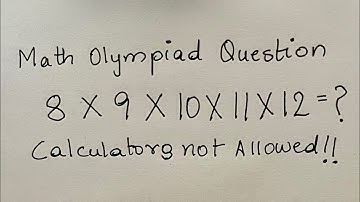 Math Olympiad Question
8 X 9 X 10 X 11 X 12 = ?
Calculators not Allowed!!